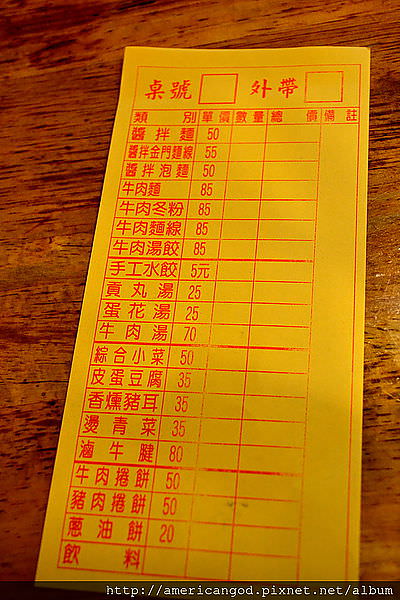 桌號 外帶
類別 單價 數量 總價 備註
醬拌麵 50
醬拌金門麵線 55
醬拌泡麵 50
牛肉麵 85
牛肉冬粉 85
牛肉麵線 85
牛肉湯餃 85
手工水餃 5元
貢丸湯 25
蛋花湯 25
牛肉湯 70
綜合小菜 50
皮蛋豆腐 35
香燻豬耳 35
燙青菜 35
滷牛腱 80
牛肉捲餅 50
豬肉捲餅 50
蔥油餅 20
飲料
http://americangod.pixnet.net/album